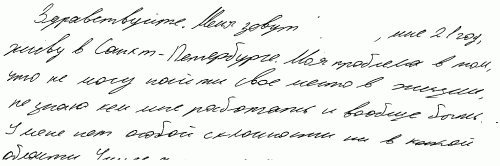 Здравствуйте. Меня зовут , мне 21 год,
живу в Санкт-Петербурге. Моя проблема в том,
что не могу найти свое место в жизни,
не знаю кем мне работать и вообще быть.
У меня нет особой склонности ни в какой
области.